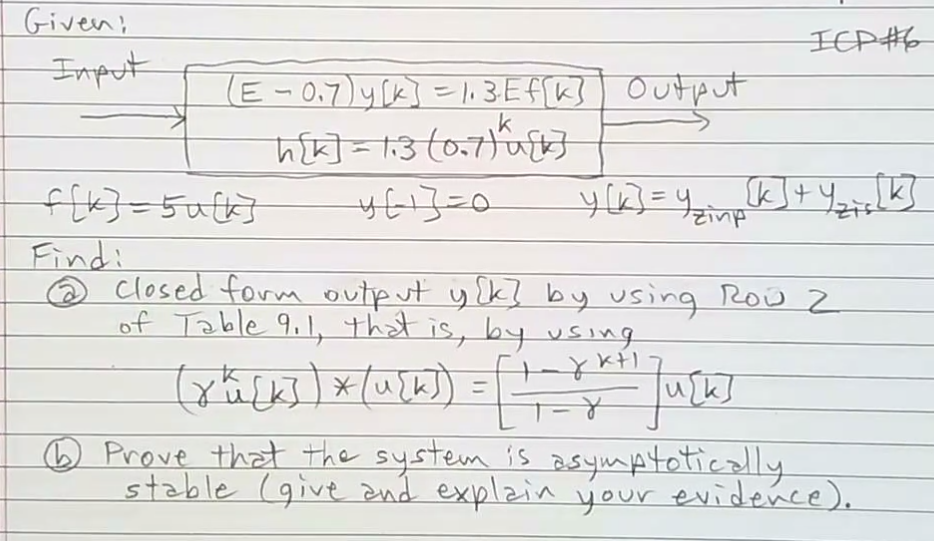 Given:
ICP#6
Input
(E - 0.7)y[k] = 1.3Ef[k]
Output
h[k] = 1.3(0.7)^k u[k]
f[k] = 5u[k] y[-1] = 0 y[k] = y_zinp[k] + y_zis[k]
Find:
ⓐ Closed form output y[k] by using Row 2
of Table 9.1, that is, by using
(γ^k u[k]) * (u[k]) = [(1 - γ^(k+1))/(1 - γ)] u[k]
ⓑ Prove that the system is asymptotically
stable (give and explain your evidence).